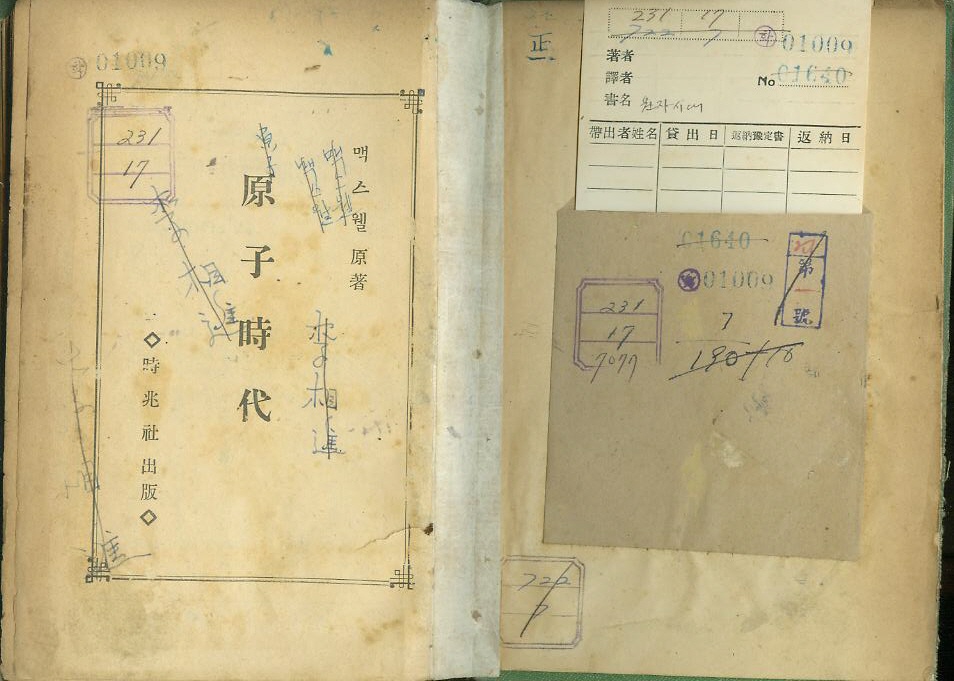 01009
231
17
맥스웰 原著
原子時代
◇時兆社出版◇
相進
相進
正
231 17
722 7
01009
著者
譯者
No 01640
書名 원자시대
帶出者姓名 貸出日 返納豫定書 返納日
01640
01009
第一號
231
17
7077
7
722
7